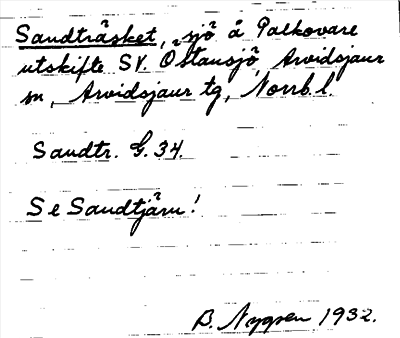 Sandträsket, sjö å Palkovare
utskifte SV. Östansjö, Arvidsjaur
sn, Arvidsjaur tg, Norrb. l.
Sandtr. G. 34.
Se Sandtjärn!
B. Nygren 1932.